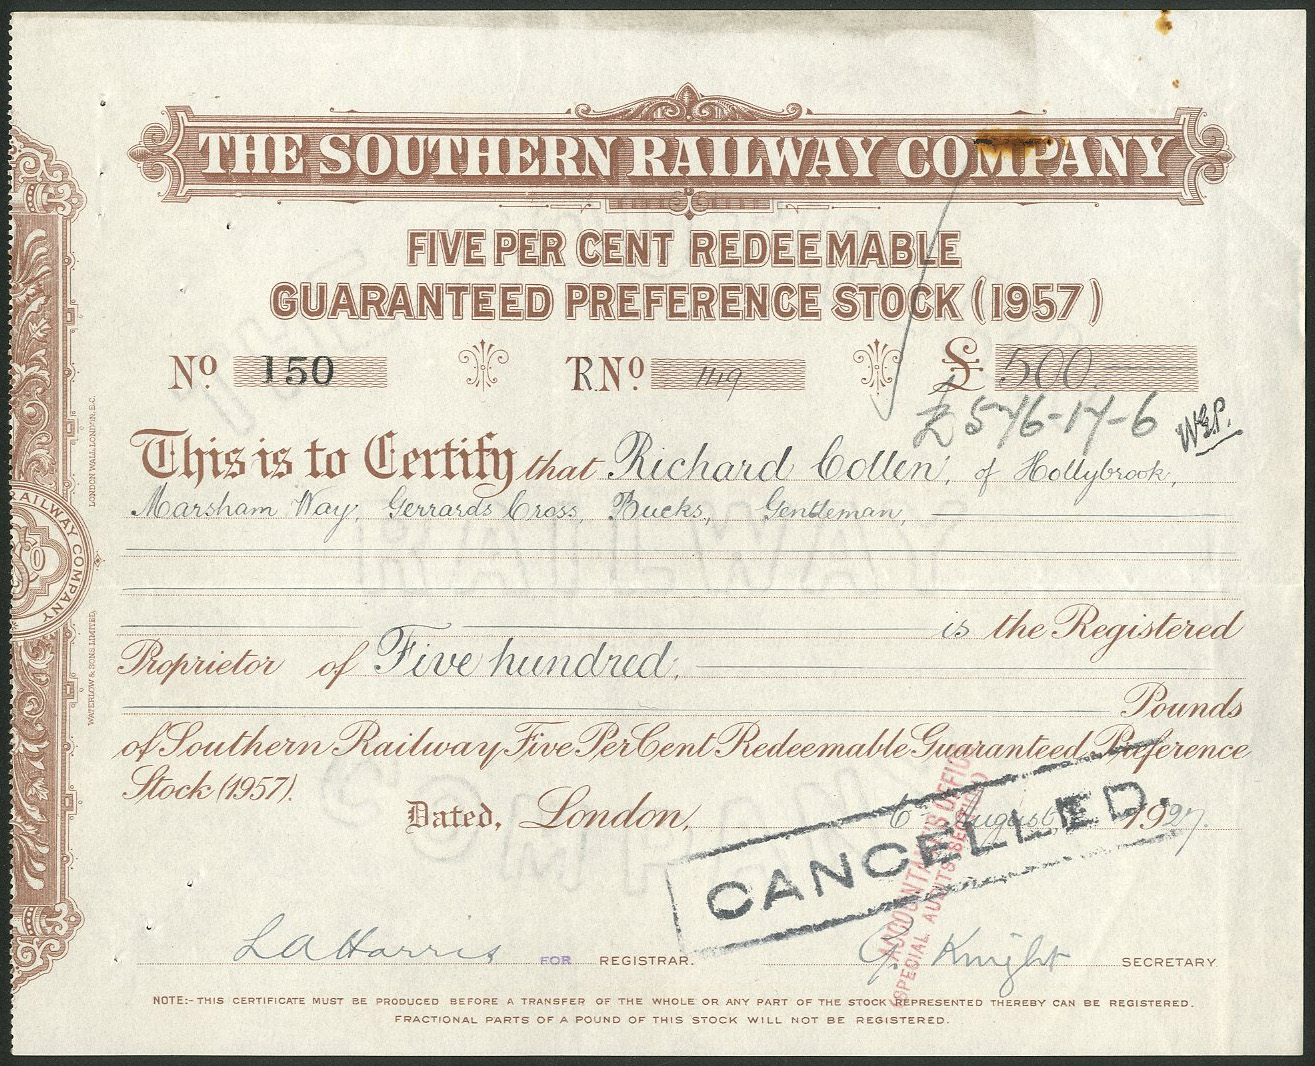 THE SOUTHERN RAILWAY COMPANY
FIVE PER CENT REDEEMABLE
GUARANTEED PREFERENCE STOCK (1957)
No 150 R.No 149 £ 500
£546-17-6 W.G.P.
This is to Certify that Richard Collen, of Hollybrook,
Marsham Way, Gerrards Cross, Bucks, Gentleman,
is the Registered
Proprietor of Five hundred,
Pounds
of Southern Railway Five Per Cent Redeemable Guaranteed Preference
Stock (1957).
Dated, London, 6 August 1927.
CANCELLED.
ACCOUNTANT'S OFFICE
(SPECIAL AUDITS SECTION)
L A Harris FOR REGISTRAR. G. Knight SECRETARY.
NOTE:- THIS CERTIFICATE MUST BE PRODUCED BEFORE A TRANSFER OF THE WHOLE OR ANY PART OF THE STOCK REPRESENTED THEREBY CAN BE REGISTERED.
FRACTIONAL PARTS OF A POUND OF THIS STOCK WILL NOT BE REGISTERED.
RAILWAY COMPANY
WATERLOW & SONS LIMITED,
LONDON WALL, LONDON, E.C.
RAILWAY